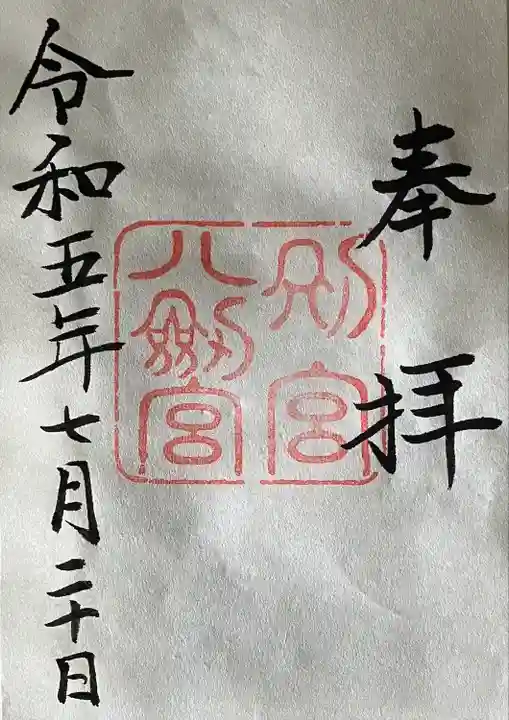 奉拝
別宮
八剱宮
令和五年七月二十日